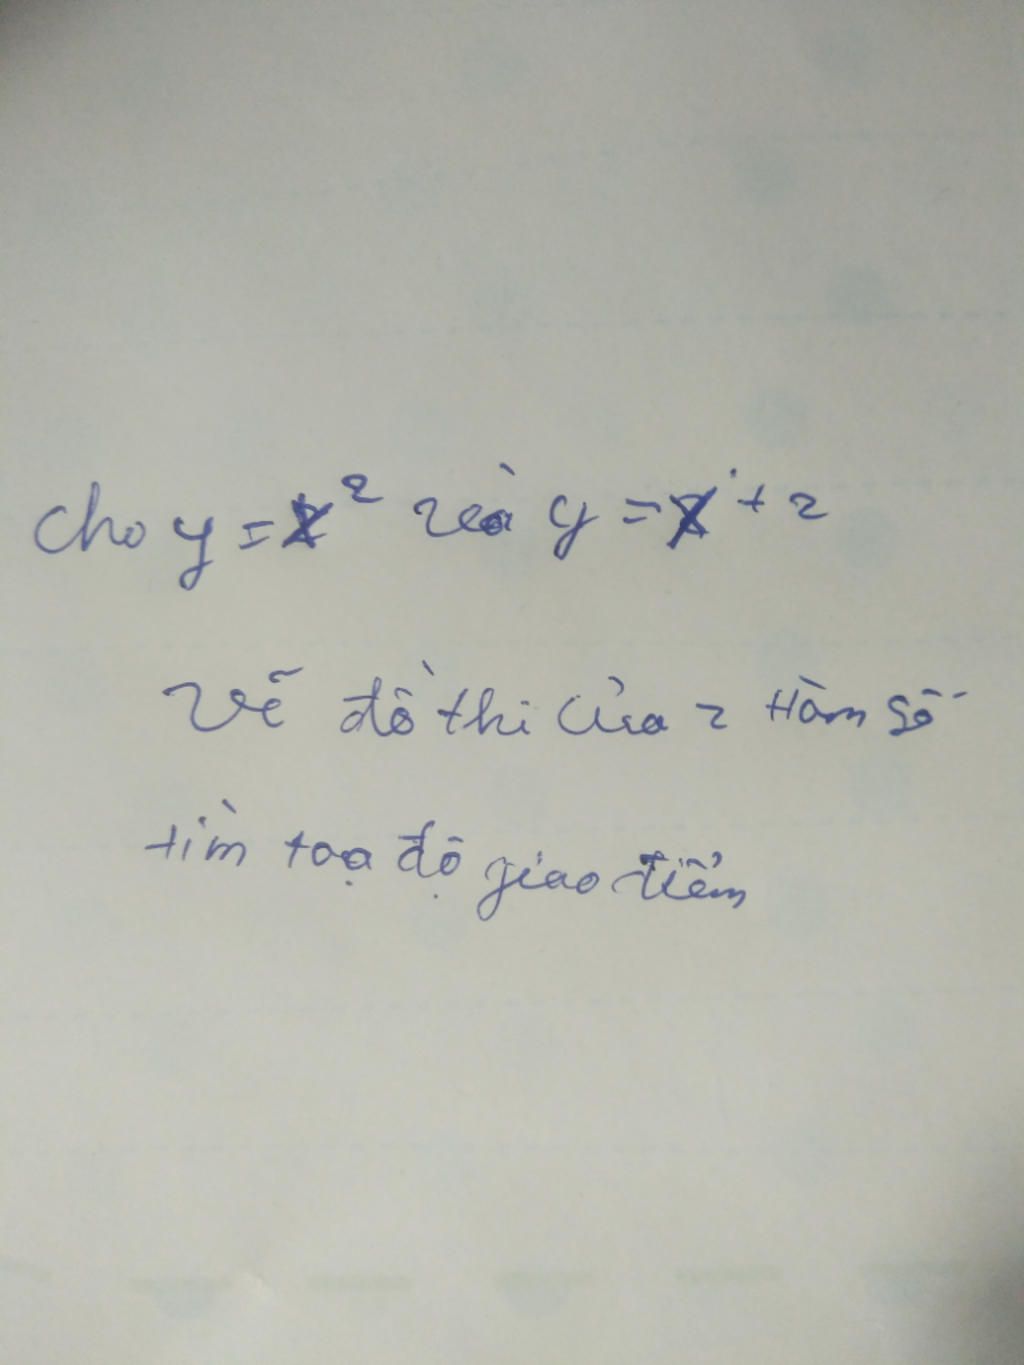 Cho y = x² và y = x + 2
Vẽ đồ thi của 2 Hàm số
tìm toạ độ giao điểm